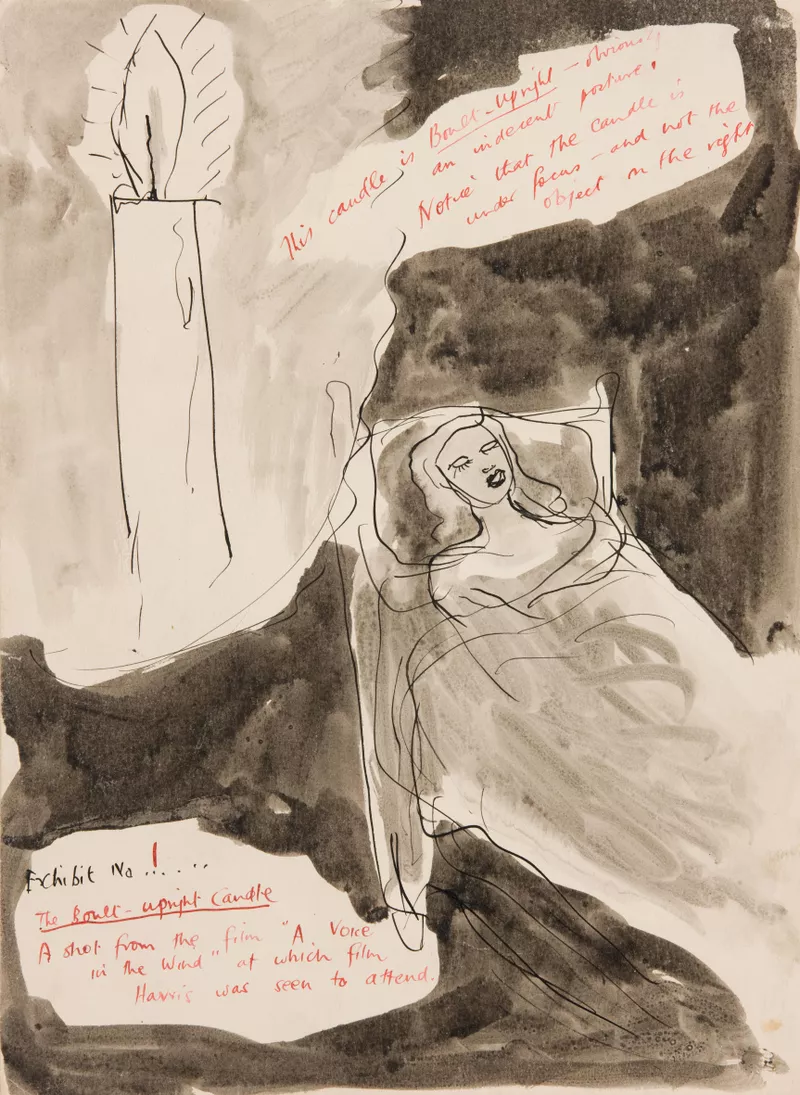 This candle is Boult-upright — obviously
an indecent posture.
Notice that the candle is
under focus — and not the
object on the right
Exhibit No 1....
The Boult-upright Candle
A shot from the film "A Voice
in the Wind" at which film
Harris was seen to attend.